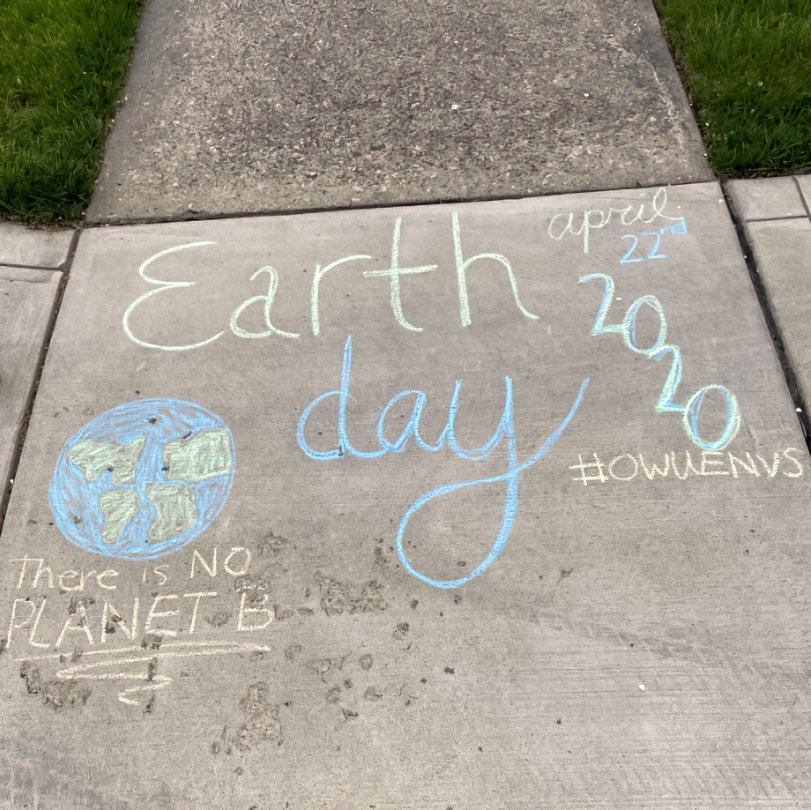 Earth
day
april
22nd
2020
#OWUENVS
There is NO
PLANET B